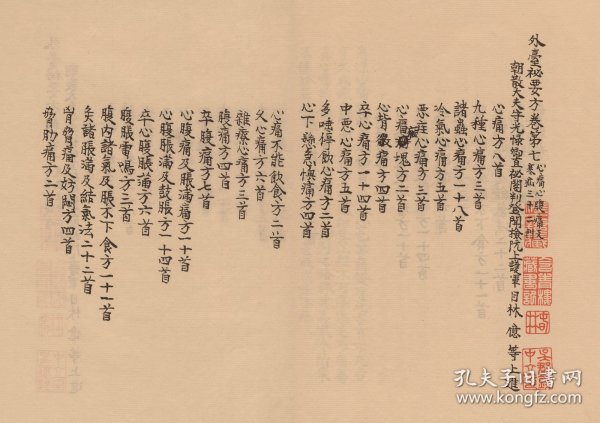 外臺秘要方卷第七 心痛心腹痛及寒疝三十二門
朝散大夫守光祿卿直秘閣判登聞檢院上護軍臣林億等上進
心痛方八首
九種心痛方三首
諸蟲心痛方一十八首
冷氣心痛方五首
惡疰心痛方三首
心痛癥塊方二首
心背徹痛方四首
卒心痛方一十四首
中惡心痛方五首
多唾停飲心痛方二首
心下懸急懊痛方四首
心痛不能飲食方二首
久心痛方六首
雜療心痛方三首
腹痛方四首
卒腹痛方七首
心腹痛及脹滿痛方一十首
心腹脹滿及鼓脹方一十四首
卒心腹脹滿方六首
腹脹雷鳴方三首
腹內諸氣及脹不下食方一十一首
灸諸脹滿及結氣法二十二首
胷脅痛及妨悶方四首
脅肋痛方二首
孔夫子旧书网
www.kongfz.com